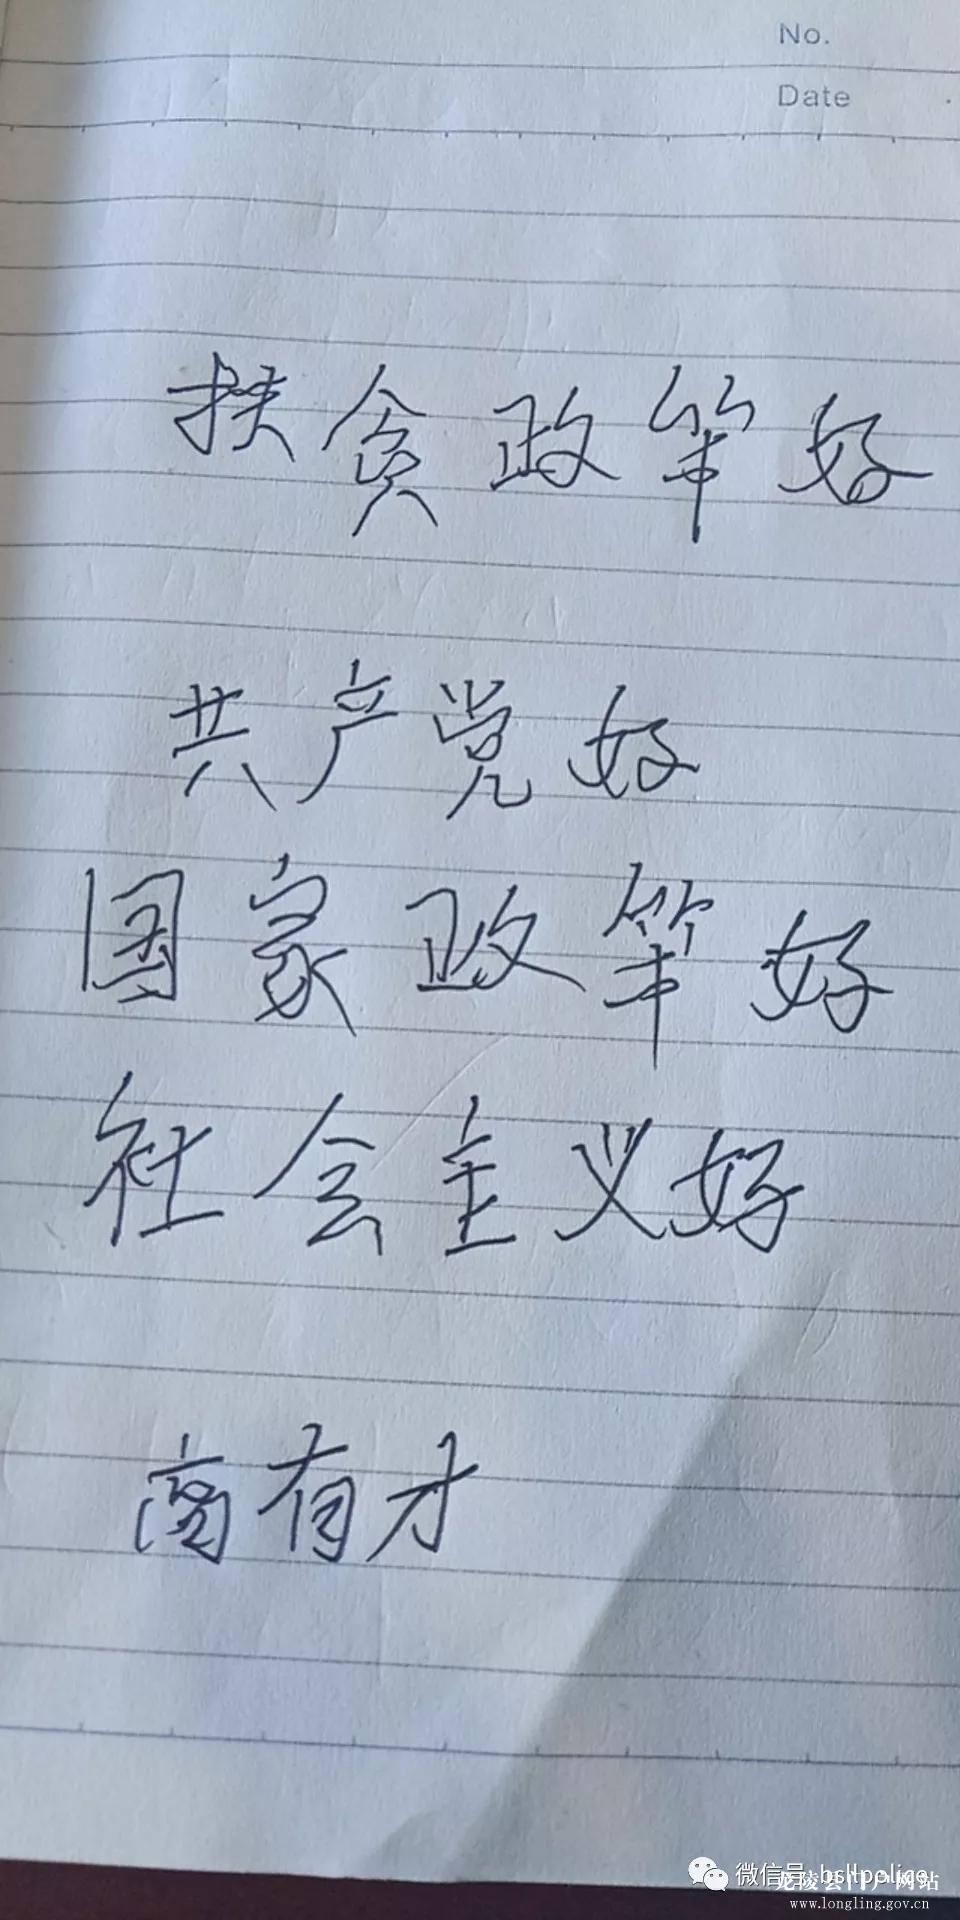 No.
Date
扶贫政策好
共产党好
国家政策好
社会主义好
商有才
微信号: bsllpolice
龙陵县门户网站
www.longling.gov.cn